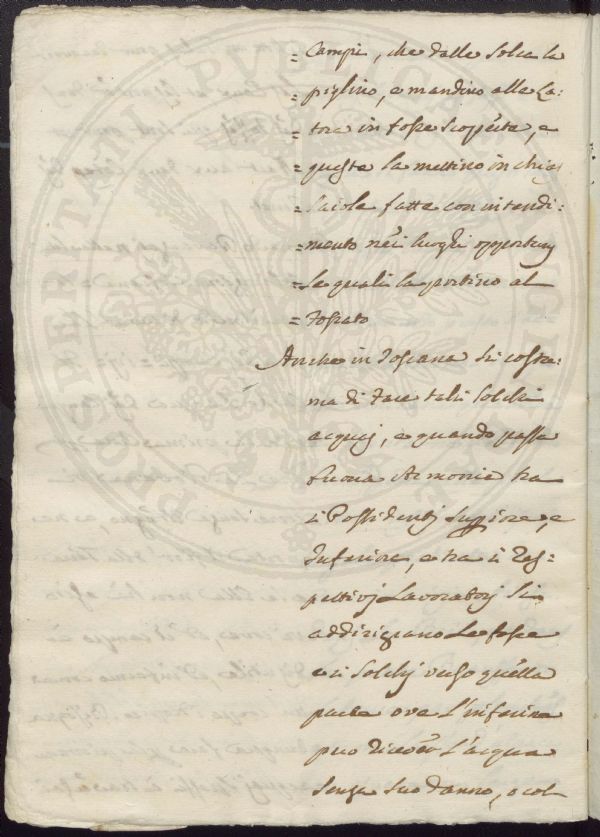 = Campi, che dalle Solca la
= piglino, e mandino alle Ca-
= tora in fosse scoperte, e
= queste la mettino in chias
= saiole fatte con intendi:
= mento nei luoghi opportuni
= le quali la portino al
= fossato
Anche in Toscana si costu:
ma di fare tali Solchi
acquaj, e quando passa
buona Armonia tra
i Possidenti Superiore, e
Inferiore, e tra i res-
pettivi Lavoratori si
addirizzano le fosse
e i Solchi verso quella
parte ove l'inferiore
può ricever l'acqua
senza suo danno, o col
PROSPERITATI PUBLICAE AUGENDAE